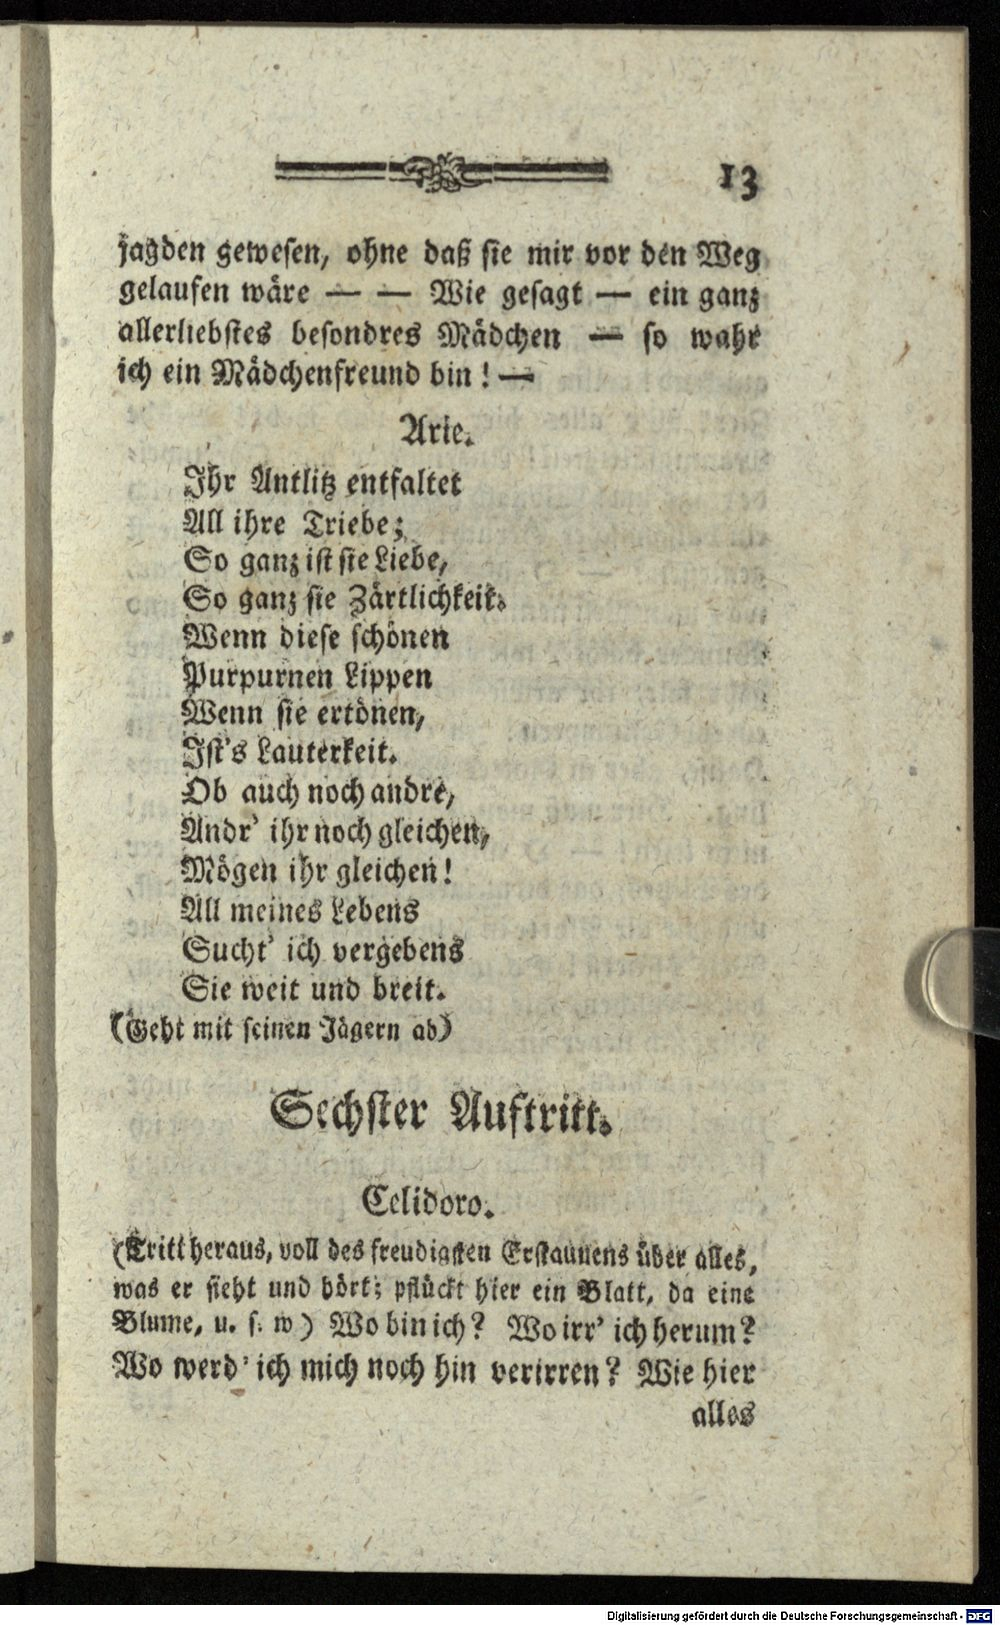 13
jagden gewesen, ohne daß sie mir vor den Weg
gelaufen wäre — — Wie gesagt — ein ganz
allerliebstes besondres Mädchen — so wahr
ich ein Mädchenfreund bin! —
Arie.
Ihr Antlitz entfaltet
All ihre Triebe;
So ganz ist sie Liebe,
So ganz sie Zärtlichkeit.
Wenn diese schönen
Purpurnen Lippen
Wenn sie ertönen,
Ist's Lauterkeit.
Ob auch noch andre,
Andr' ihr noch gleichen,
Mögen ihr gleichen!
All meines Lebens
Sucht' ich vergebens
Sie weit und breit.
(Geht mit seinen Jägern ab)
Sechster Auftritt.
Celidoro.
(Tritt heraus, voll des freudigsten Erstaunens über alles,
was er sieht und hört; pflückt hier ein Blatt, da eine
Blume, u. s. w) Wo bin ich? Wo irr' ich herum?
Wo werd' ich mich noch hin verirren? Wie hier
alles
Digitalisierung gefördert durch die Deutsche Forschungsgemeinschaft - DFG